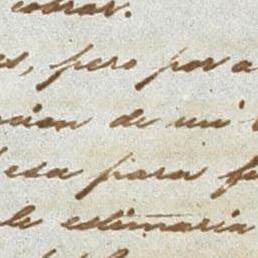 cobrar.
es, pero por a
cion de mi
esa para
le estimaria